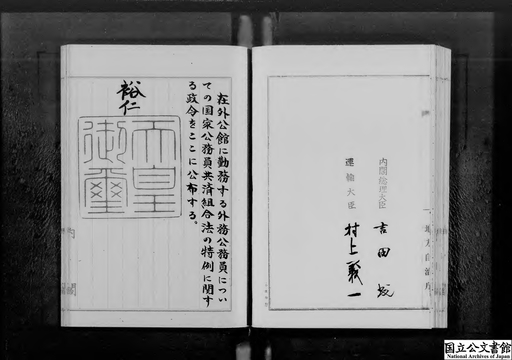 在外公館に勤務する外務公務員につい
ての国家公務員共済組合法の特例に関す
る政令をここに公布する。
裕仁
天皇
御璽
内閣総理大臣
吉田茂
運輸大臣
村上義一
国立公文書館
National Archives of Japan